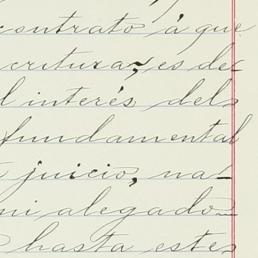 contrato á que
critura, es de
l interés del
fundamental
juicio, na-
ni alegado
hasta este